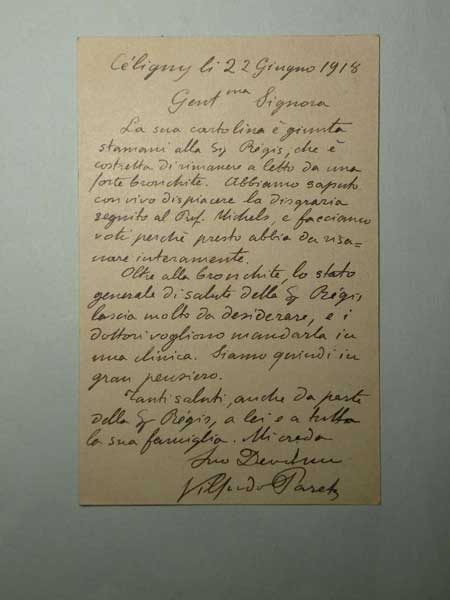 Céligny li 22 Giugno 1918
Gent ma Signora
La sua cartolina è giunta
stamani alla Sa Régis, che è
costretta di rimanere a letto da una
forte bronchite. Abbiamo saputo
con vivo dispiacere la disgrazia
seguita al Prof. Michels, e facciamo
voti perchè presto abbia da risa=
nare interamente.
Oltre alla bronchite, lo stato
generale di salute della Sa Régis
lascia molto da desiderare, e i
dottori vogliono mandarla in
una clinica. Siamo quindi in
gran pensiero.
Tanti saluti, anche da parte
della Sa Régis, a lei e a tutta
la sua famiglia. Mi creda
Suo Devmo
Vilfredo Pareto